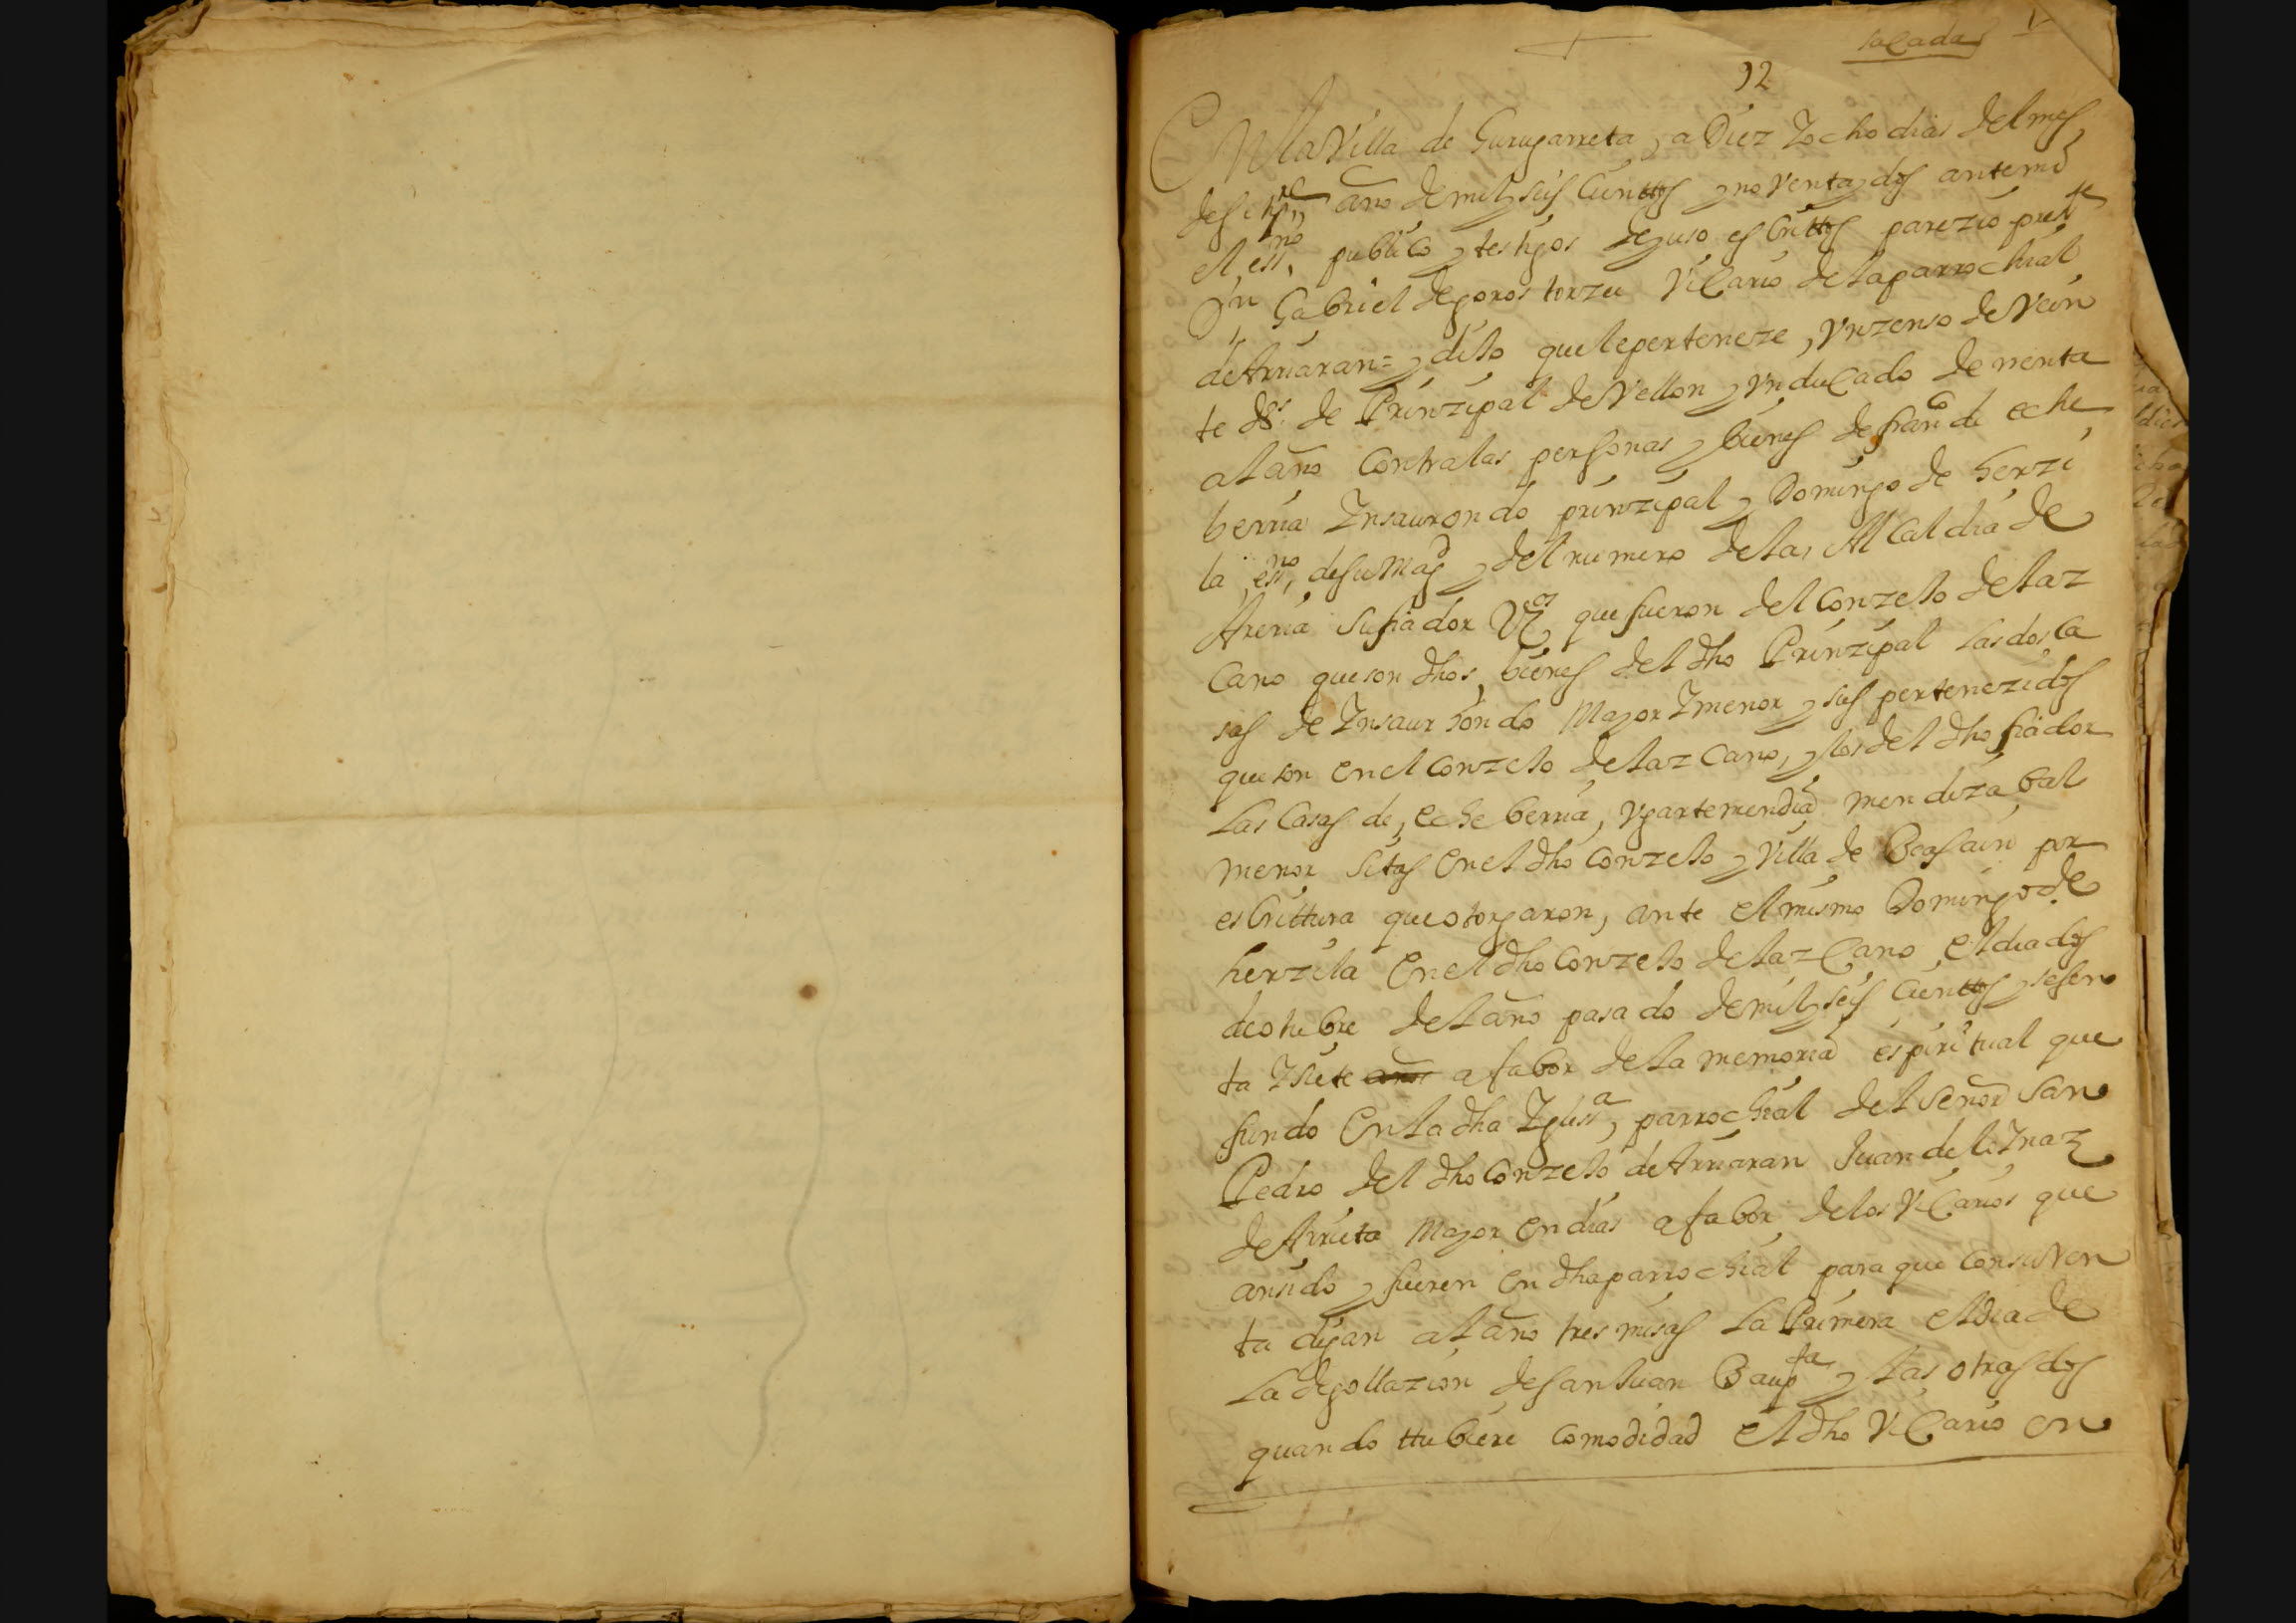 sacada
92
En la Villa de Gurugarreta, a Diez Y ocho dias del mes
de sep.re año de mil y seis cienttos y noventa y dos ante mi
el ess.no publico y testigos de yuso escrittos parezio press.te
Dn Gabriel de gorostorzu Vicario de la parrochial
de Arriaran = y dijo que le perteneze, Vn zenso de Vein
te ds. de Prinzipal de Vellon y Vn ducado de rrenta
al año contra las personas y bienes de fran.co de eche
berria Ynsaurondo prinzipal y Domingo de herzi
la, ess.no de su Mag.d y del numero de las Alcaldia de
Areria su fiador Vz.os que fueron del conzejo de laz
cano que son dhos, bienes del dho Prinzipal las dos ca
sas de Ynsaurhondo Mayor Y menor y sus pertenezidos
que son en el conzejo de lazcano, y los del dho fiador
las casas de, echeberria, Ygartemendia mendizabal
menor sitas en el dho conzejo y villa de Beasain por
escrittura que otorgaron, ante el mismo Domingo de
herzila en el dho conzejo de lazcano el dia dos
de otubre del año pasado de mil y seis cienttos y sesen
ta Y siete años a fabor de la memoria espiritual que
fundo en la dha Ygless.a parrochial del señor San
Pedro del dho conzejo de Arriaran Juan de
de Arrieta Mayor en dias a fabor de los Vicarios que
an sido y fueren en dha parrochial para que con su Ren
ta digan al año tres misas la Primera el dia de
la degollazion de san Juan Baup.ta y las otras dos
quando ttubiere comodidad el dho Vicario en